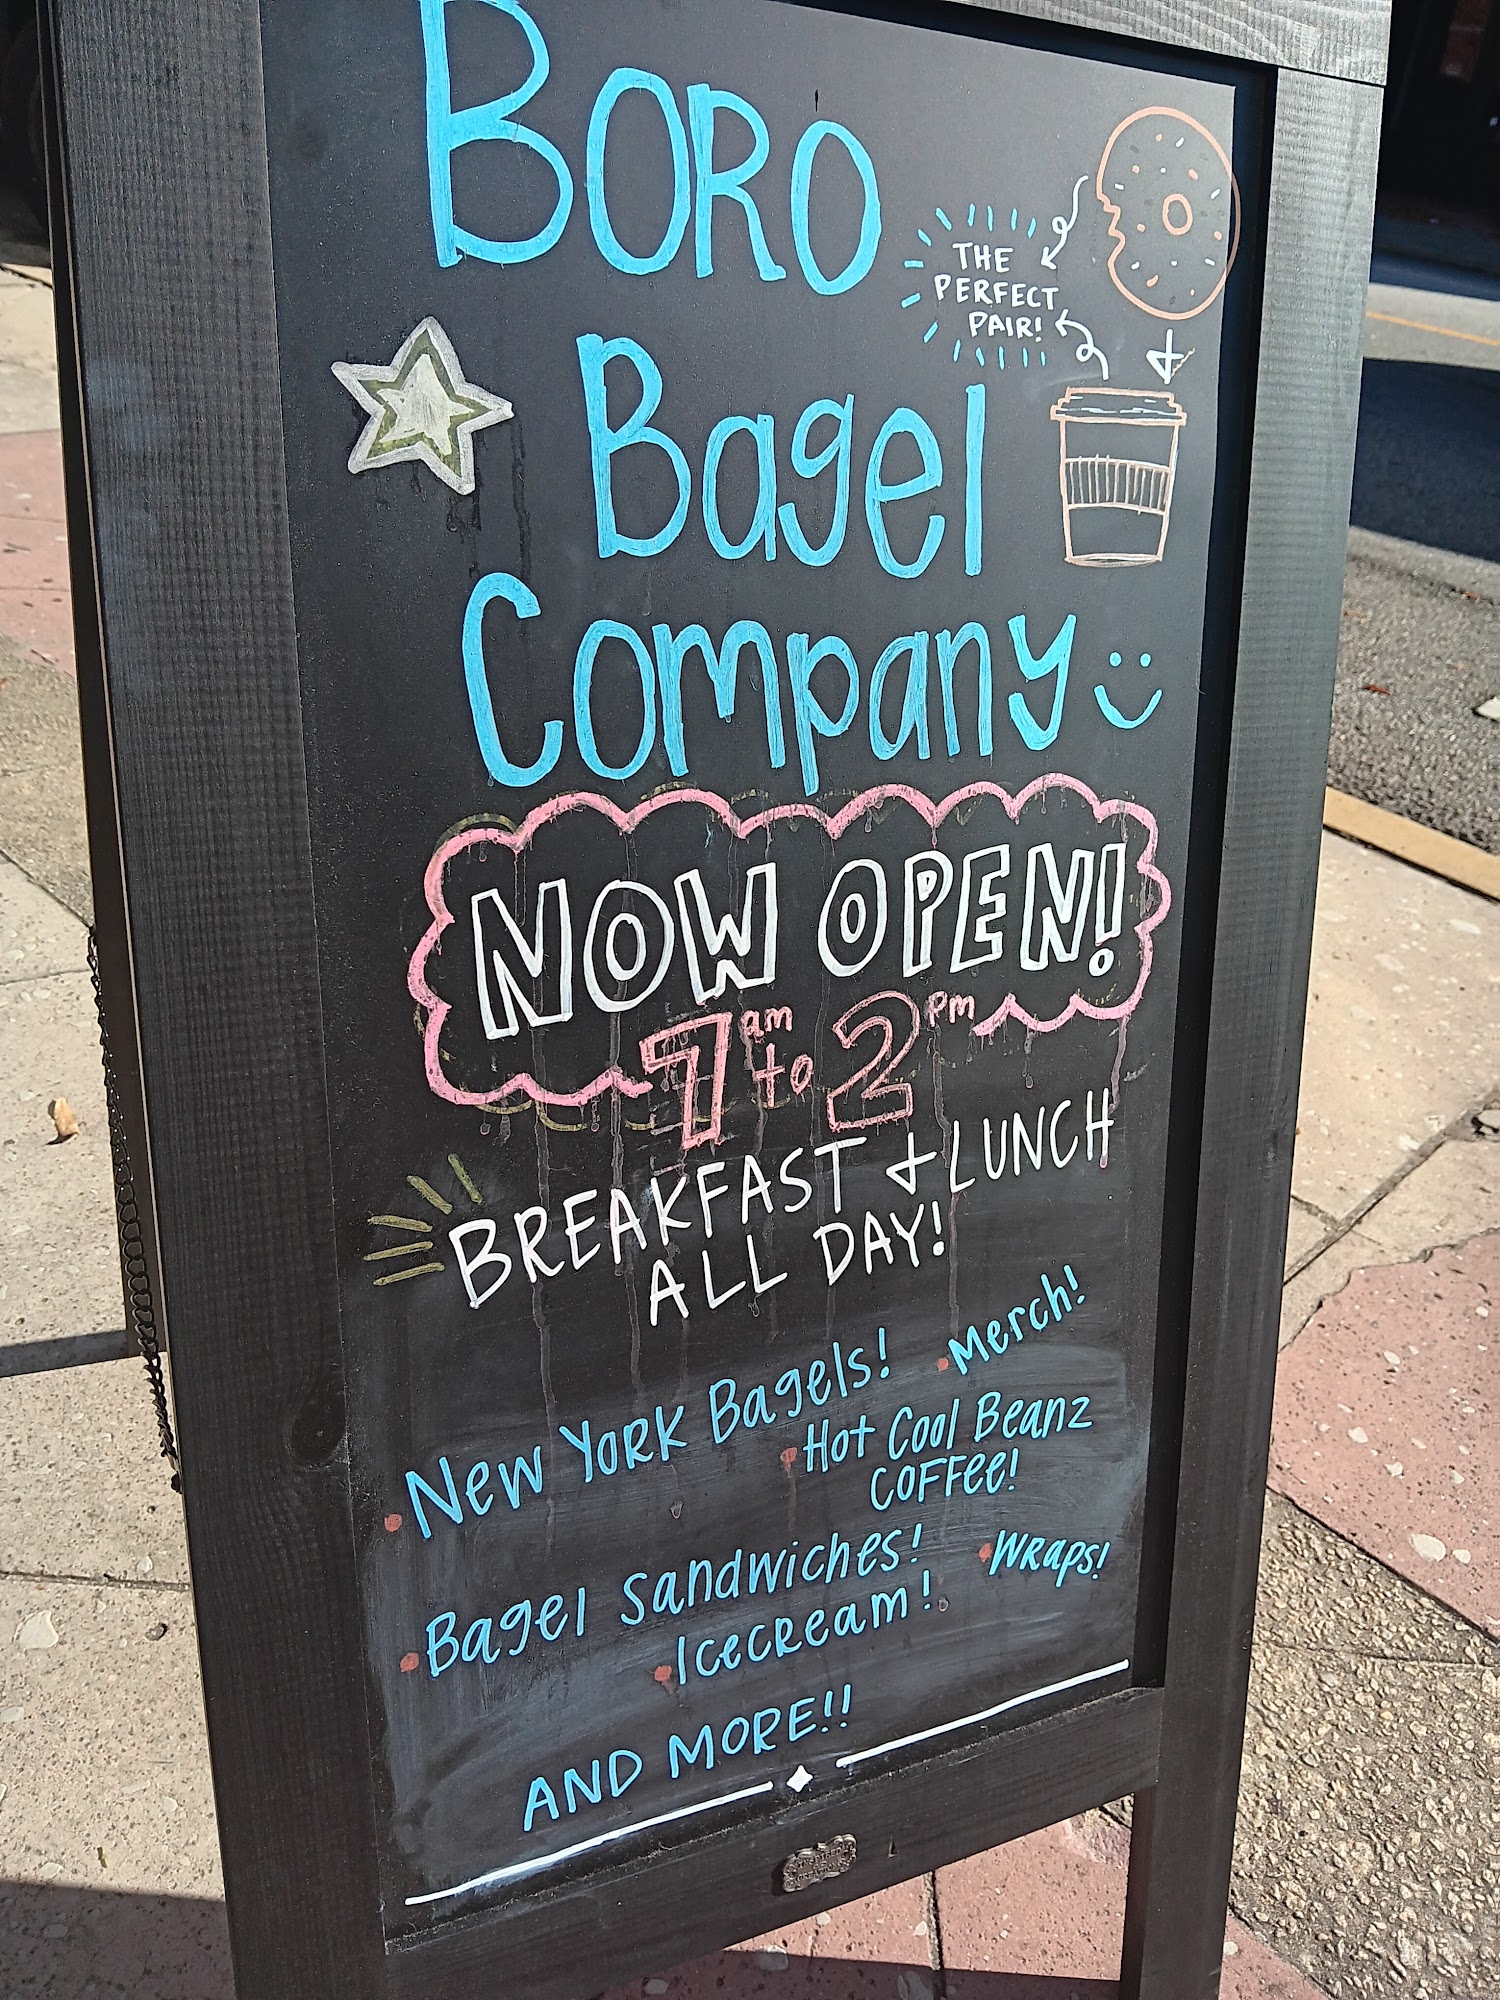 BORO
THE
PERFECT
PAIR!
&
Bagel
Company
NOW OPEN!
7am to 2pm
BREAKFAST & LUNCH
ALL DAY!
New York Bagels!
Merch!
Hot Cool Beanz
Coffee!
Bagel Sandwiches!
Wraps!
Icecream!
AND MORE!!